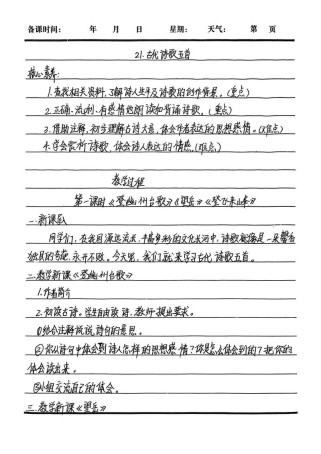 备课时间： 年 月 日 星期： 天气： 第 页
21.古代诗歌五首
核心素养：
1.查找相关资料，了解诗人生平及诗歌的创作背景。（重点）
2.正确、流利、有感情地朗读和背诵诗歌。（重点）
3.借助注解，初步理解古诗大意，体会作者表达的思想感情。（难点）
4.学会赏析诗歌，体会诗人表达的情感。（难点）
教学过程
第一课时《登幽州台歌》《望岳》《登飞来峰》
一.新课导入
同学们，在我国源远流长、丰富多彩的文化长河中，诗歌就像是一朵馨香
独具的奇葩，永开不败。今天呢，我们就来学习古代诗歌五首。
二.教学新课《登幽州台歌》
1.作者简介
2.初读古诗。学生自由读诗，教师提出要求。
①结合注解说说，诗句的意思。
②你从诗句中体会到诗人怎样的思想感情？你是怎么体会到的？把你的
体会读出来。
③小组交流自己的体会。
三.教学新课《望岳》